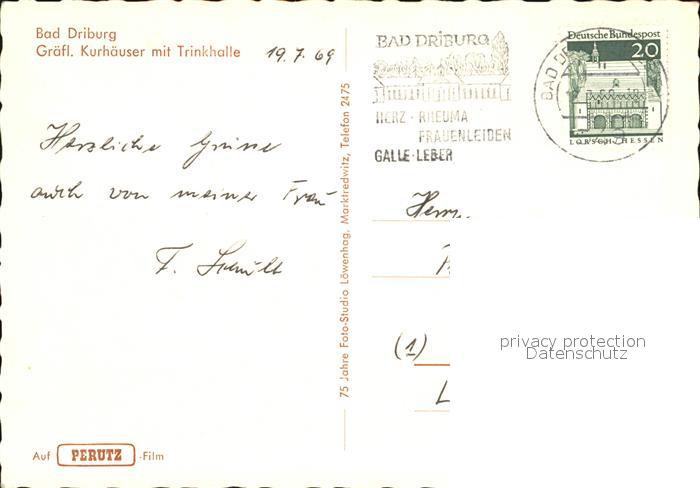 Bad Driburg
Gräfl. Kurhäuser mit Trinkhalle
19.7.69
Herzliche Grüsse
auch von meiner Frau
F. Schulte
Auf PERUTZ -Film
75 Jahre Foto-Studio Löwenhag, Marktredwitz, Telefon 2475
BAD DRIBURG
HERZ · RHEUMA
FRAUENLEIDEN
GALLE·LEBER
BAD
Deutsche Bundespost
20
LORSCH/HESSEN
Herrn
(1)
L
privacy protection
Datenschutz